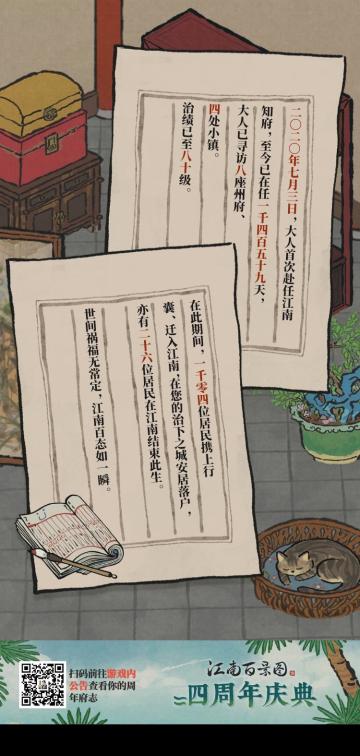 二〇二〇年七月三日，大人首次赴任江南
知府，至今已在任一千四百五十九天，
大人已寻访八座州府、
四处小镇。
治绩已至八十级。
在此期间，一千零四位居民携上行
囊、迁入江南，在您的治下之城安居落户，
亦有二十六位居民在江南结束此生。
世间祸福无常定，江南百态如一瞬。
扫码前往游戏内
公告查看你的周
年府志
江南百景图
四周年庆典